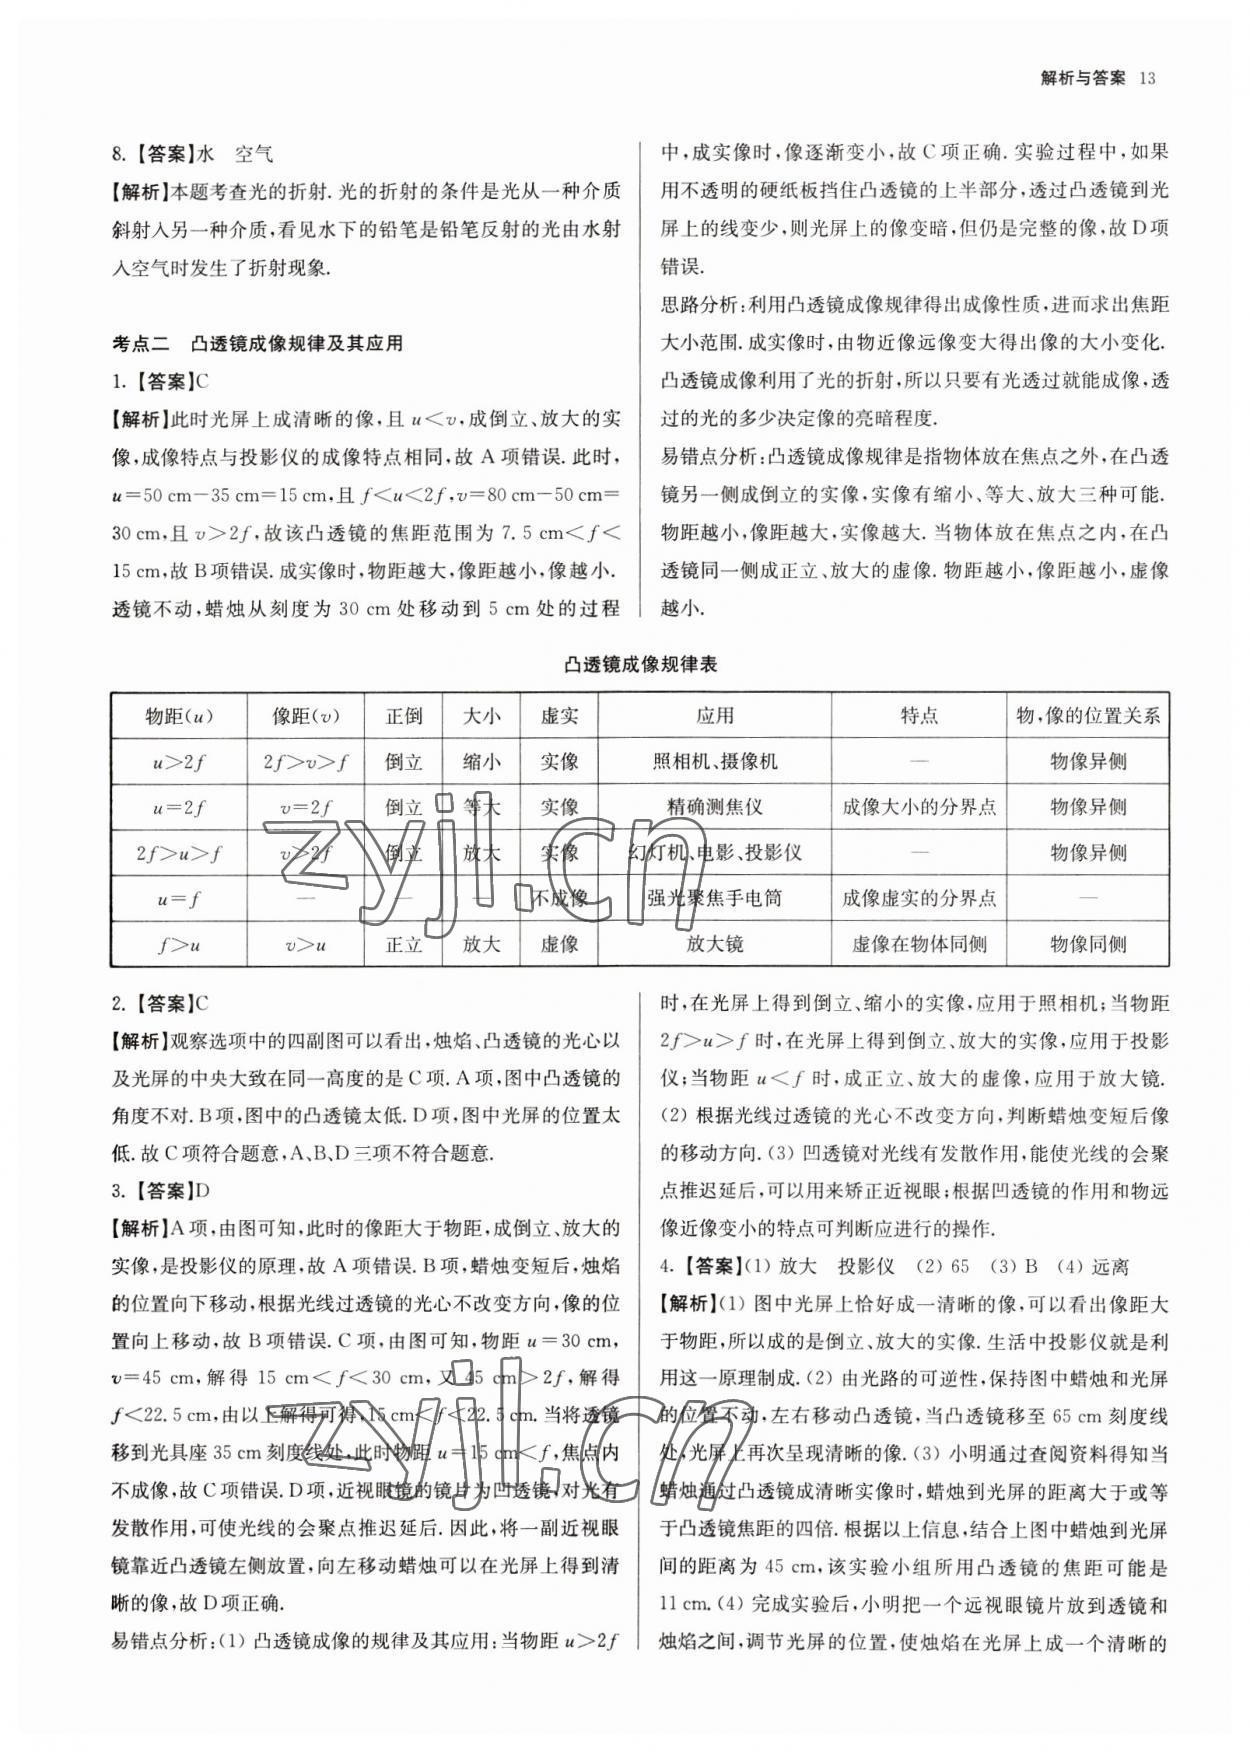 解析与答案 13
8. 【答案】水　空气
【解析】本题考查光的折射. 光的折射的条件是光从一种介质
斜射入另一种介质,看见水下的铅笔是铅笔反射的光由水射
入空气时发生了折射现象.
考点二　凸透镜成像规律及其应用
1. 【答案】C
【解析】此时光屏上成清晰的像,且 u<v,成倒立、放大的实
像,成像特点与投影仪的成像特点相同,故 A 项错误. 此时,
u=50 cm-35 cm=15 cm,且 f<u<2f,v=80 cm-50 cm=
30 cm,且 v>2f,故该凸透镜的焦距范围为 7. 5 cm<f<
15 cm,故 B 项错误. 成实像时,物距越大,像距越小,像越小.
透镜不动,蜡烛从刻度为 30 cm 处移动到 5 cm 处的过程
中,成实像时,像逐渐变小,故 C 项正确. 实验过程中,如果
用不透明的硬纸板挡住凸透镜的上半部分,透过凸透镜到光
屏上的线变少,则光屏上的像变暗,但仍是完整的像,故 D 项
错误.
思路分析:利用凸透镜成像规律得出成像性质,进而求出焦距
大小范围. 成实像时,由物近像远像变大得出像的大小变化.
凸透镜成像利用了光的折射,所以只要有光透过就能成像,透
过的光的多少决定像的亮暗程度.
易错点分析:凸透镜成像规律是指物体放在焦点之外,在凸透
镜另一侧成倒立的实像,实像有缩小、等大、放大三种可能.
物距越小,像距越大,实像越大. 当物体放在焦点之内,在凸
透镜同一侧成正立、放大的虚像. 物距越小,像距越小,虚像
越小.
凸透镜成像规律表
物距(u) 像距(v) 正倒 大小 虚实 应用 特点 物,像的位置关系
u>2f 2f>v>f 倒立 缩小 实像 照相机、摄像机 — 物像异侧
u=2f v=2f 倒立 等大 实像 精确测焦仪 成像大小的分界点 物像异侧
2f>u>f v>2f 倒立 放大 实像 幻灯机、电影、投影仪 — 物像异侧
u=f — — — 不成像 强光聚焦手电筒 成像虚实的分界点 —
f>u v>u 正立 放大 虚像 放大镜 虚像在物体同侧 物像同侧
zyjl.cn
2. 【答案】C
【解析】观察选项中的四副图可以看出,烛焰、凸透镜的光心以
及光屏的中央大致在同一高度的是 C 项. A 项,图中凸透镜的
角度不对. B 项,图中的凸透镜太低. D 项,图中光屏的位置太
低. 故 C 项符合题意,A、B、D 三项不符合题意.
3. 【答案】D
【解析】A 项,由图可知,此时的像距大于物距,成倒立、放大的
实像,是投影仪的原理,故 A 项错误. B 项,蜡烛变短后,烛焰
的位置向下移动,根据光线过透镜的光心不改变方向,像的位
置向上移动,故 B 项错误. C 项,由图可知,物距 u=30 cm,
v=45 cm,解得 15 cm<f<30 cm,又 45 cm>2f,解得
f<22. 5 cm,由以上解得可得,15 cm<f<22. 5 cm. 当将透镜
移到光具座 35 cm 刻度线处,此时物距 u=15 cm<f,焦点内
不成像,故 C 项错误. D 项,近视眼镜的镜片为凹透镜,对光有
发散作用,可使光线的会聚点推迟延后. 因此,将一副近视眼
镜靠近凸透镜左侧放置,向左移动蜡烛可以在光屏上得到清
晰的像,故 D 项正确.
易错点分析:(1) 凸透镜成像的规律及其应用:当物距 u>2f
时,在光屏上得到倒立、缩小的实像,应用于照相机;当物距
2f>u>f 时,在光屏上得到倒立、放大的实像,应用于投影
仪;当物距 u<f 时,成正立、放大的虚像,应用于放大镜.
(2) 根据光线过透镜的光心不改变方向,判断蜡烛变短后像
的移动方向. (3) 凹透镜对光线有发散作用,能使光线的会聚
点推迟延后,可以用来矫正近视眼;根据凹透镜的作用和物远
像近像变小的特点可判断应进行的操作.
4. 【答案】(1) 放大　投影仪　(2) 65　(3) B　(4) 远离
【解析】(1) 图中光屏上恰好成一清晰的像,可以看出像距大
于物距,所以成的是倒立、放大的实像. 生活中投影仪就是利
用这一原理制成. (2) 由光路的可逆性,保持图中蜡烛和光屏
的位置不动,左右移动凸透镜,当凸透镜移至 65 cm 刻度线
处,光屏上再次呈现清晰的像. (3) 小明通过查阅资料得知当
蜡烛通过凸透镜成清晰实像时,蜡烛到光屏的距离大于或等
于凸透镜焦距的四倍. 根据以上信息,结合上图中蜡烛到光屏
间的距离为 45 cm,该实验小组所用凸透镜的焦距可能是
11 cm. (4) 完成实验后,小明把一个远视眼镜片放到透镜和
烛焰之间,调节光屏的位置,使烛焰在光屏上成一个清晰的
zyjl.cn